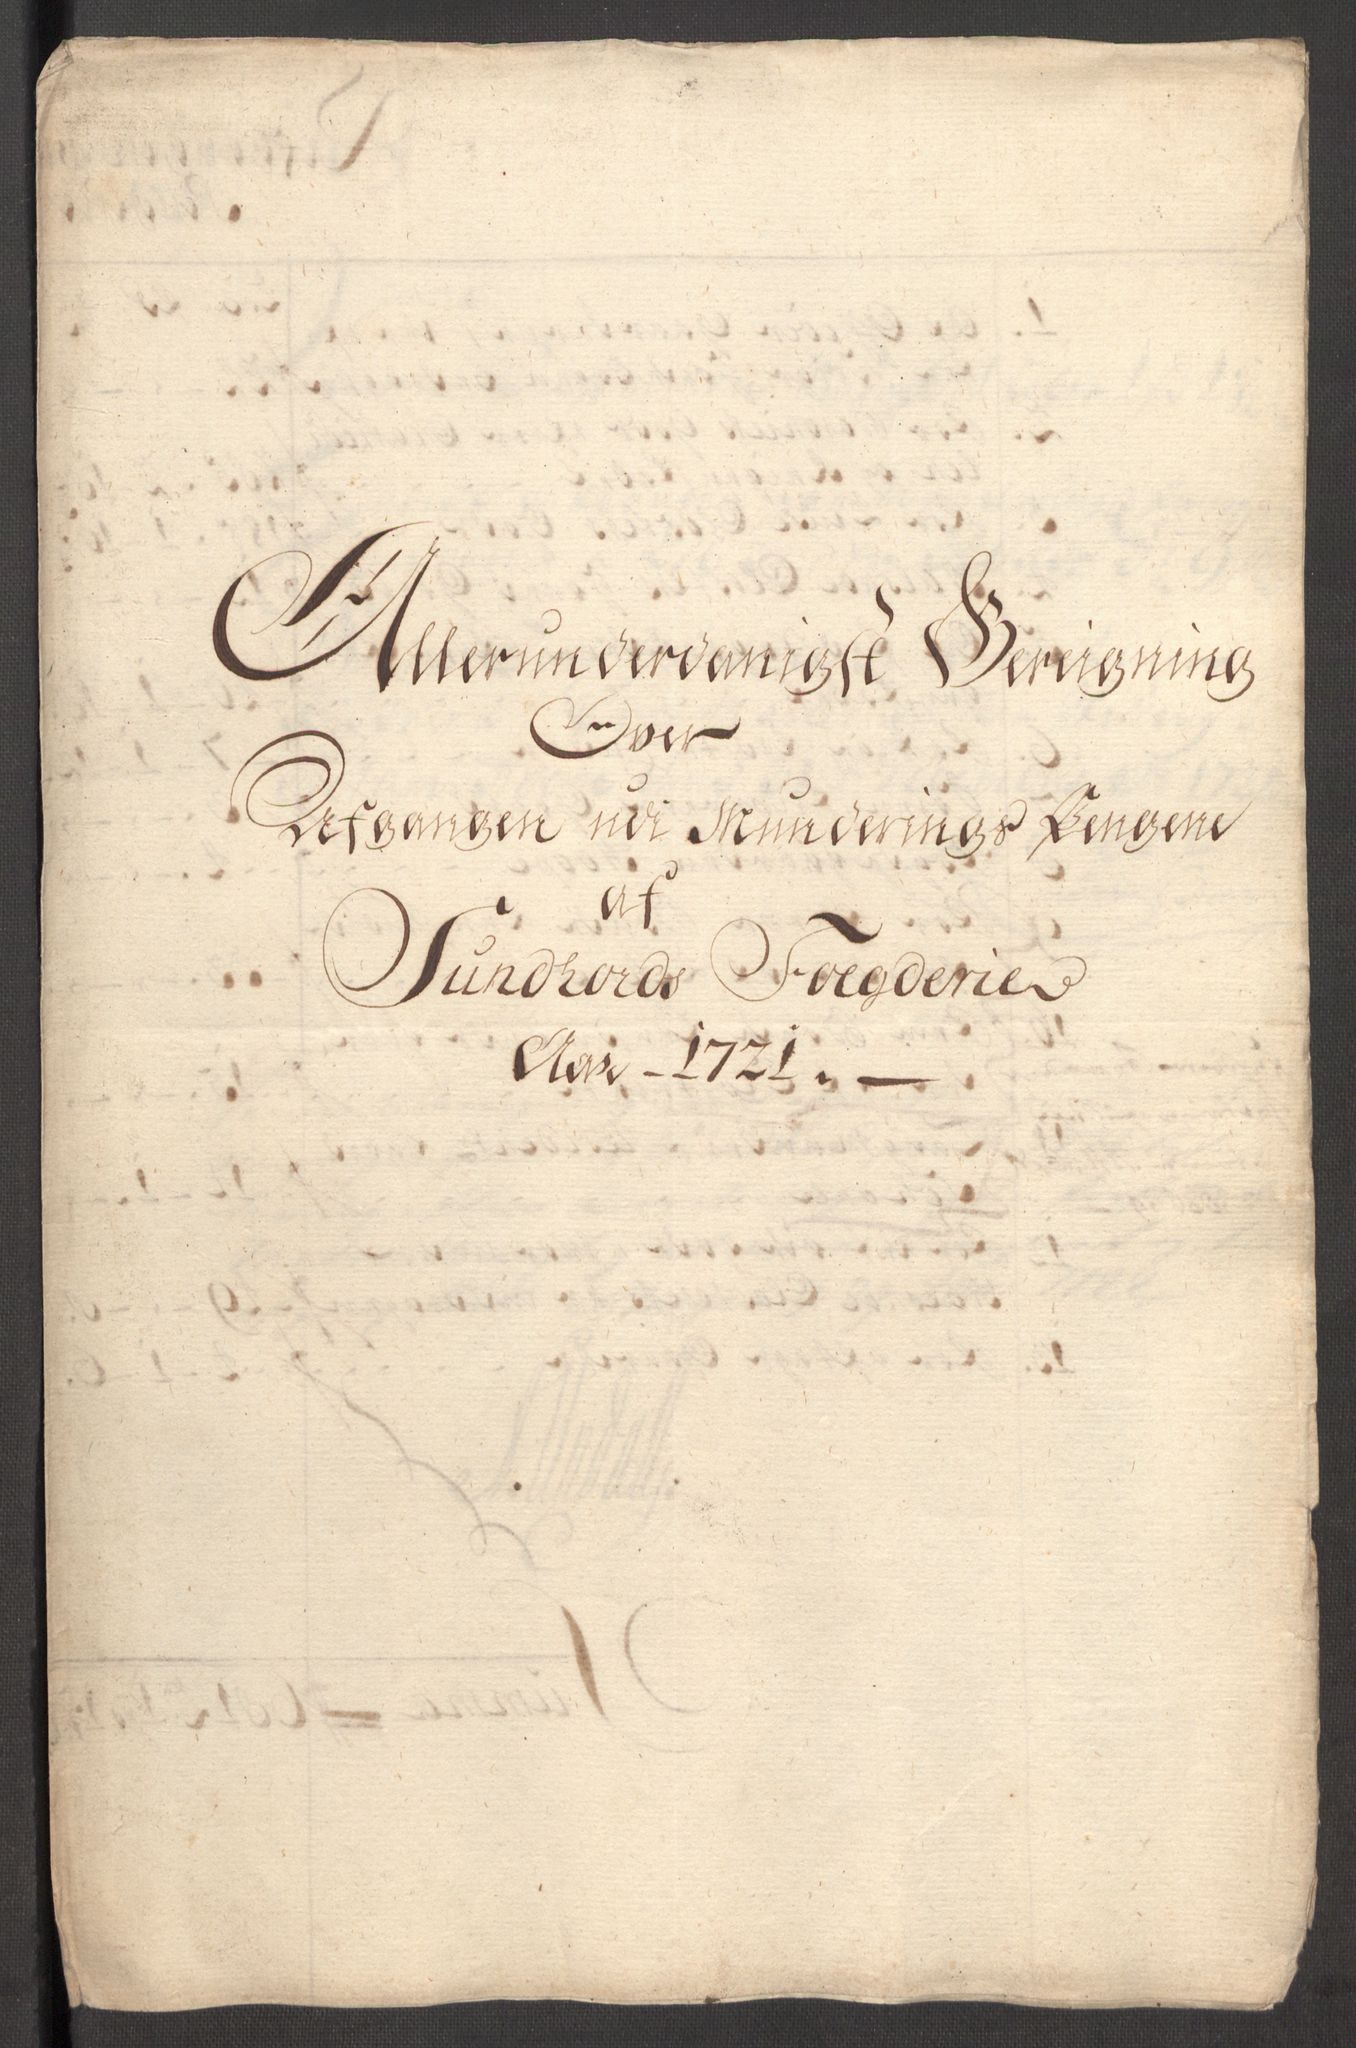 Allerunderdanigst Bereigning
Over
Afgangen udi Munderings Pengene
af
Sundhords Foegderie
Aar 1721.